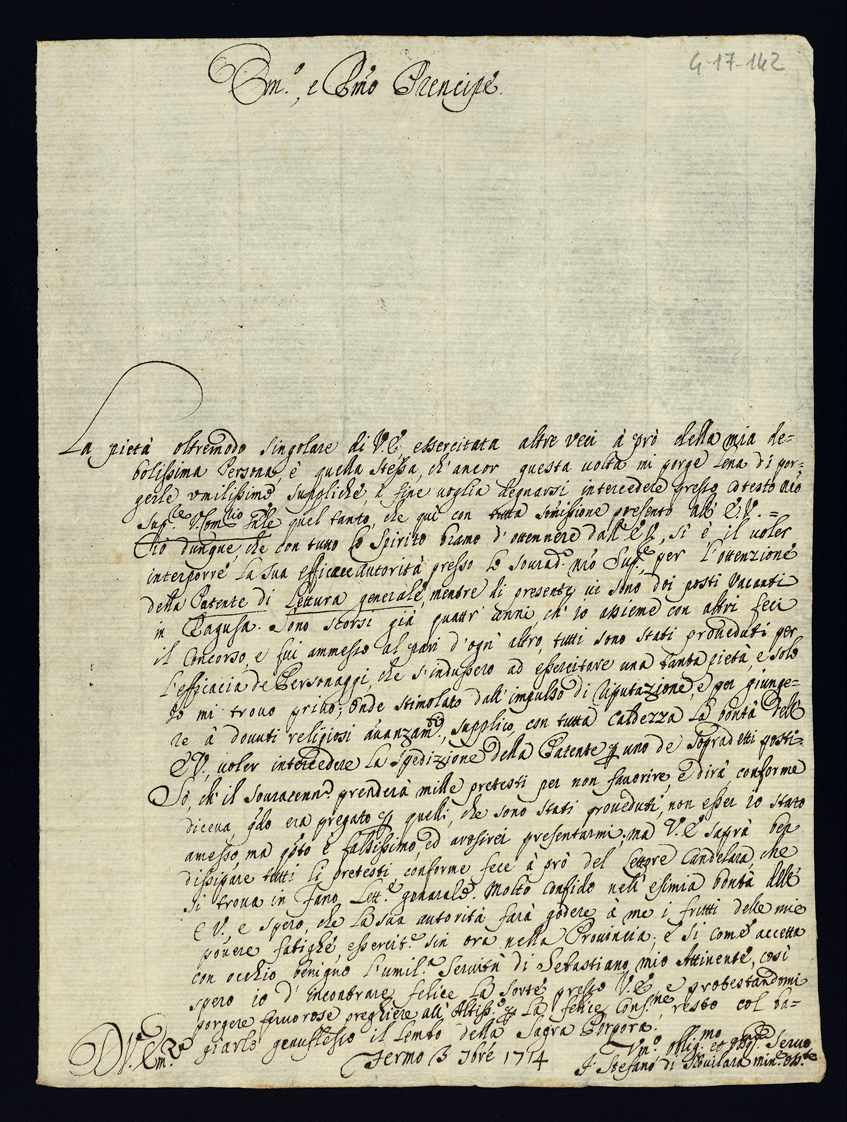 4-17-142
Em.º, e Rmo Prencipe.
La pietà oltremodo singolare di V.E. essercitata altre veci à prò della mia de=
bolissima Persona, è quella stessa, ch'ancor questa volta mi porge lena di por=
gerle umilissime suppliche, à fine voglia degnarsi intercedere presso cotesto mio
quel tanto, che qui con tutta somissione presento all' E.V. =
Ciò dunque, che con tutto lo Spirito bramo d'ottennere dall' E.V., si è il voler
interporre la sua efficace autorità presso lo sourad.º mio Sup.re per l'ottenzione
della Patente di Lettura generale, mentre di presente vi sono doi posti vacanti
in Ragusa. Sono scorsi già quattr' anni, ch'io assieme con altri feci
il Concorso, e fui ammesso al pari d'ogn' altro, tutti sono stati proveduti per
l'efficacia de Personaggi, che s'indussero ad essercitare una tanta pietà, e solo
Io mi trovo privo; onde stimolato dall' impulso di riputazione, e per giunge=
re à dovuti religiosi avanzam.ti, supplico, con tutta caldezza la bontà dell'
E.V., voler intercedere la Spedizione della Patente p uno de Sopradetti posti.
Sò, ch'il Souracenn.º prenderà mille pretesti per non favorire e dirà, conforme
diceva, qdo era pregato p quelli, che sono stati proveduti, non esser io stato
amesso, ma qsto è falsissimo, ed ardirei presentarmi; ma V.E. saprà ben
dissipare tutti li pretesti, conforme fece à prò del Lettore Candelara, che
si trova in Fano Lett.e generale. Molto confido nell' esimia bontà dell'
E.V., e spero, che la sua autorità farà godere à me i frutti delle mie
povere fatighe, essercit.e sin ora nella Provincia; e si come accetta
con occhio benigno l'umil.ma servitù di Sebastiano mio Attinente, così
spero io d'incontrare felice la sorte presso V.E., e protestandomi
porgere fervorose preghiere all' Altiss.º p la felice Cons.ne, resto col ba=
giarle genuflesso il lembo della Sagra Porpora.
D.V.E. Em.ma
Fermo 3 7bre 1714
Um.º, oblig.mo et Servo
F. Stefano di min. oss.te